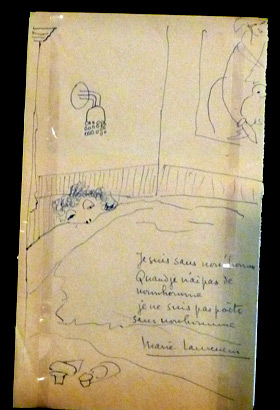 Je suis sans nounhomme
Quand je n'ai pas de
nounhomme
je ne suis pas poète
sans nounhomme
Marie Laurencin